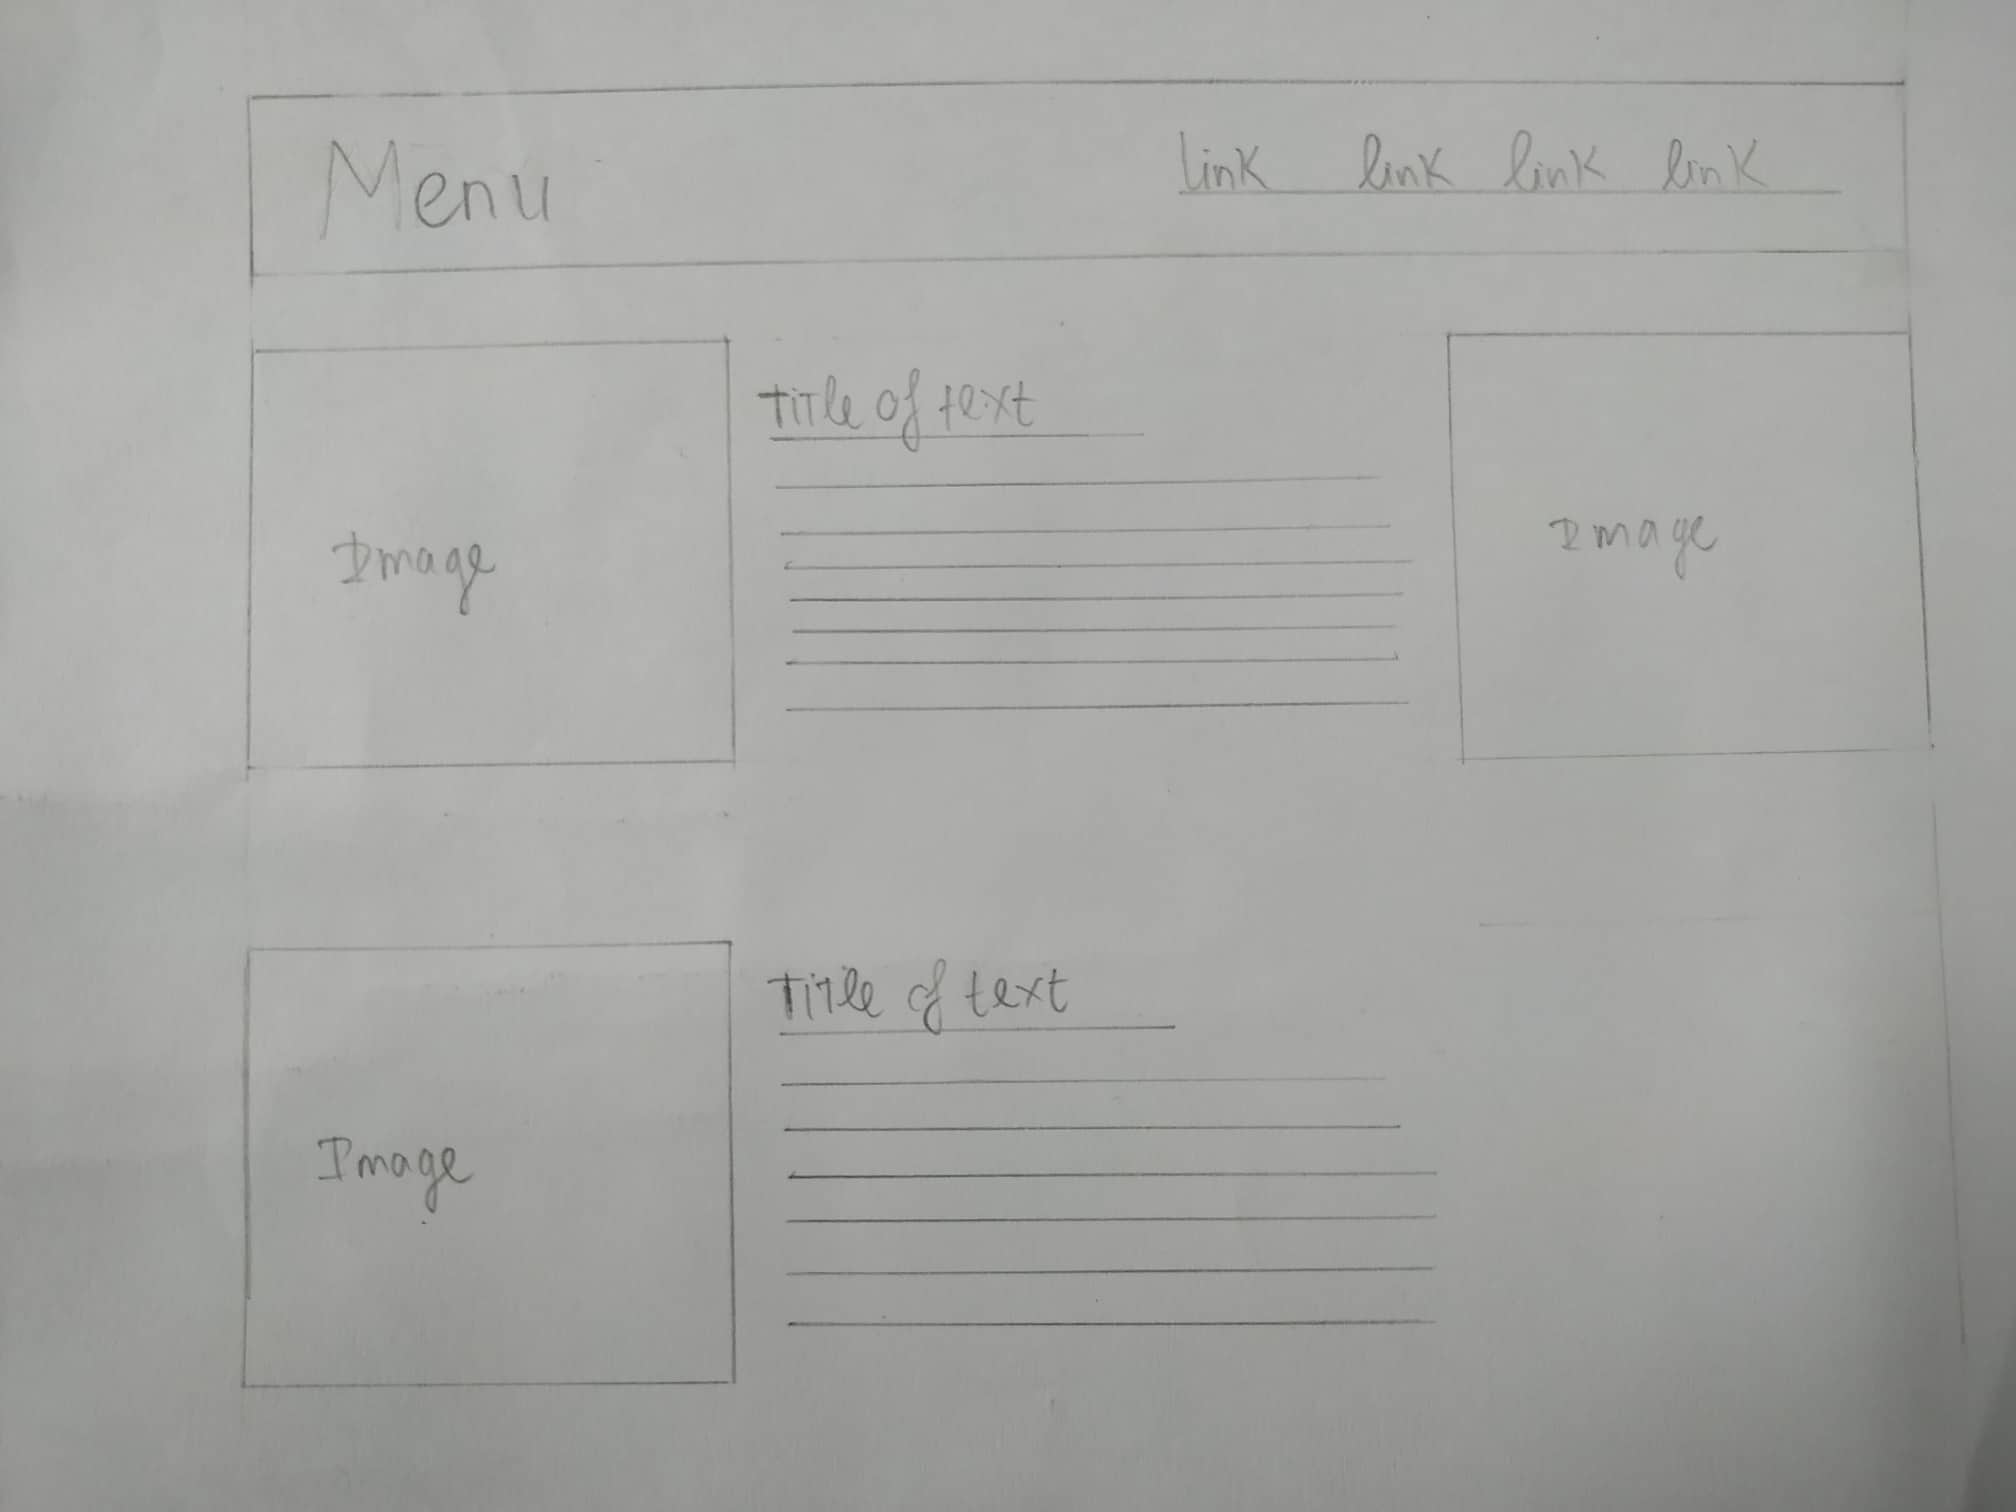 Menu
Link link link link
Title of text
Image
Image
Title of text
Image